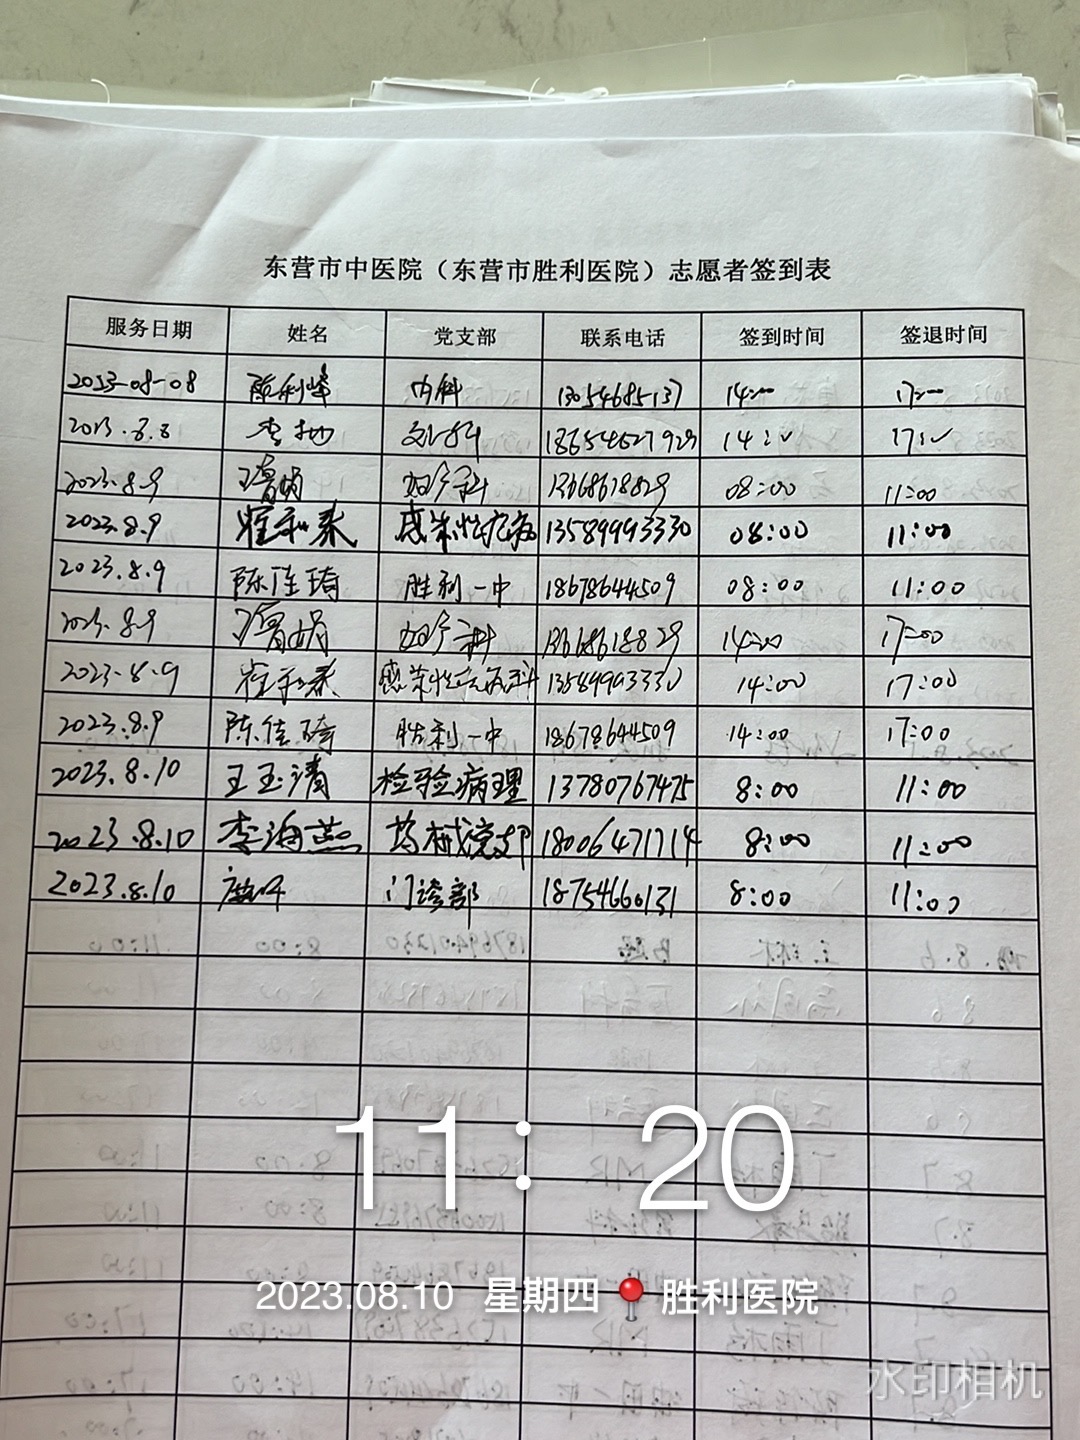 东营市中医院（东营市胜利医院）志愿者签到表
服务日期 姓名 党支部 联系电话 签到时间 签退时间
2023-08-08 陈利峰 内科 13054685137 14:00 17:00
2023.8.8 18654627929 14: 17:
2023.8.9 妇产科 13668618829 08:00 11:00
2023.8.9 感染性疾病 13589993330 08:00 11:00
2023.8.9 陈佳琦 胜利一中 18678644509 08:00 11:00
2023.8.9 妇产科 13668618829 14:00 17:00
2023.8.9 感染性疾病科 13589993330 14:00 17:00
2023.8.9 陈佳琦 胜利一中 18678644509 14:00 17:00
2023.8.10 王玉清 检验病理 13780767475 8:00 11:00
2023.8.10 李海燕 药械党支部 18006471714 8:00 11:00
2023.8.10 门诊部 18754660131 8:00 11:00
11:20
2023.08.10 星期四 胜利医院
水印相机